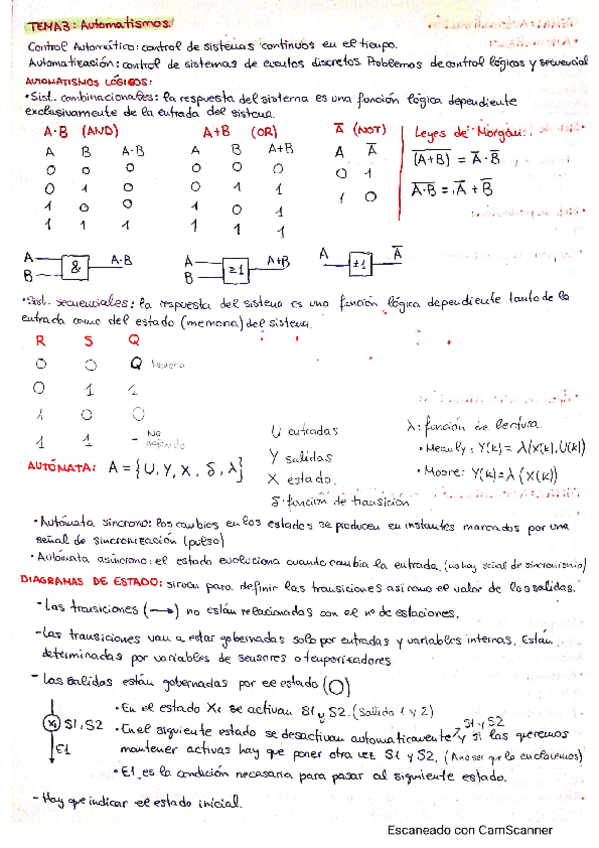 TEMA3: Automatismos.
Control Automático: control de sistemas continuos en el tiempo.
Automatización: control de sistemas de eventos discretos. Problemas de control lógicos y secuencial
AUTOMATISMOS LÓGICOS:
• Sist. combinacionales: la respuesta del sistema es una función lógica dependiente
exclusivamente de la entrada del sistema.
A·B (AND) A+B (OR) A̅ (NOT) Leyes de Morgan:
A B A·B A B A+B A A̅
0 0 0 0 0 0 0 1
0 1 0 0 1 1 1 0
1 0 0 1 0 1
1 1 1 1 1 1
(A+B)̅ = A̅·B̅
A·B̅ = A̅ + B̅
A B & A·B
A B ≥1 A+B
A ±1 A̅
• Sist. secuenciales: la respuesta del sistema es una función lógica dependiente tanto de la
entrada como del estado (memoria) del sistema.
R S Q
0 0 Q
0 1 1
1 0 0
1 1 - No
U entradas
Y salidas
X estado.
δ función de transición
λ: función de lectura.
• Mealy: Y(k) = λ(X(k), U(k))
• Moore: Y(k) = λ(X(k))
AUTÓMATA: A = {U, Y, X, δ, λ}
• Autómata síncrono: los cambios en los estados se producen en instantes marcados por una
señal de sincronización (pulso)
• Autómata asíncrono: el estado evoluciona cuando cambia la entrada. (no hay señal de sincronismo)
DIAGRAMAS DE ESTADO: sirven para definir las transiciones así como el valor de las salidas.
- Las transiciones (→) no están relacionadas con el nº de estaciones.
- Las transiciones van a estar gobernadas solo por entradas y variables internas. Están
determinadas por variables de sensores o temporizadores
- Las salidas están gobernadas por el estado (O)
X1 S1, S2
E1
• En el estado X1 se activan S1 y S2. (Salida 1 y 2)
• En el siguiente estado se desactivan automaticamente S1 y S2 y si las queremos
mantener activas hay que poner otra vez S1 y S2. (A no ser que lo enclavemos)
• E1 es la condición necesaria para pasar al siguiente estado.
- Hay que indicar el estado inicial.
Escaneado con CamScanner